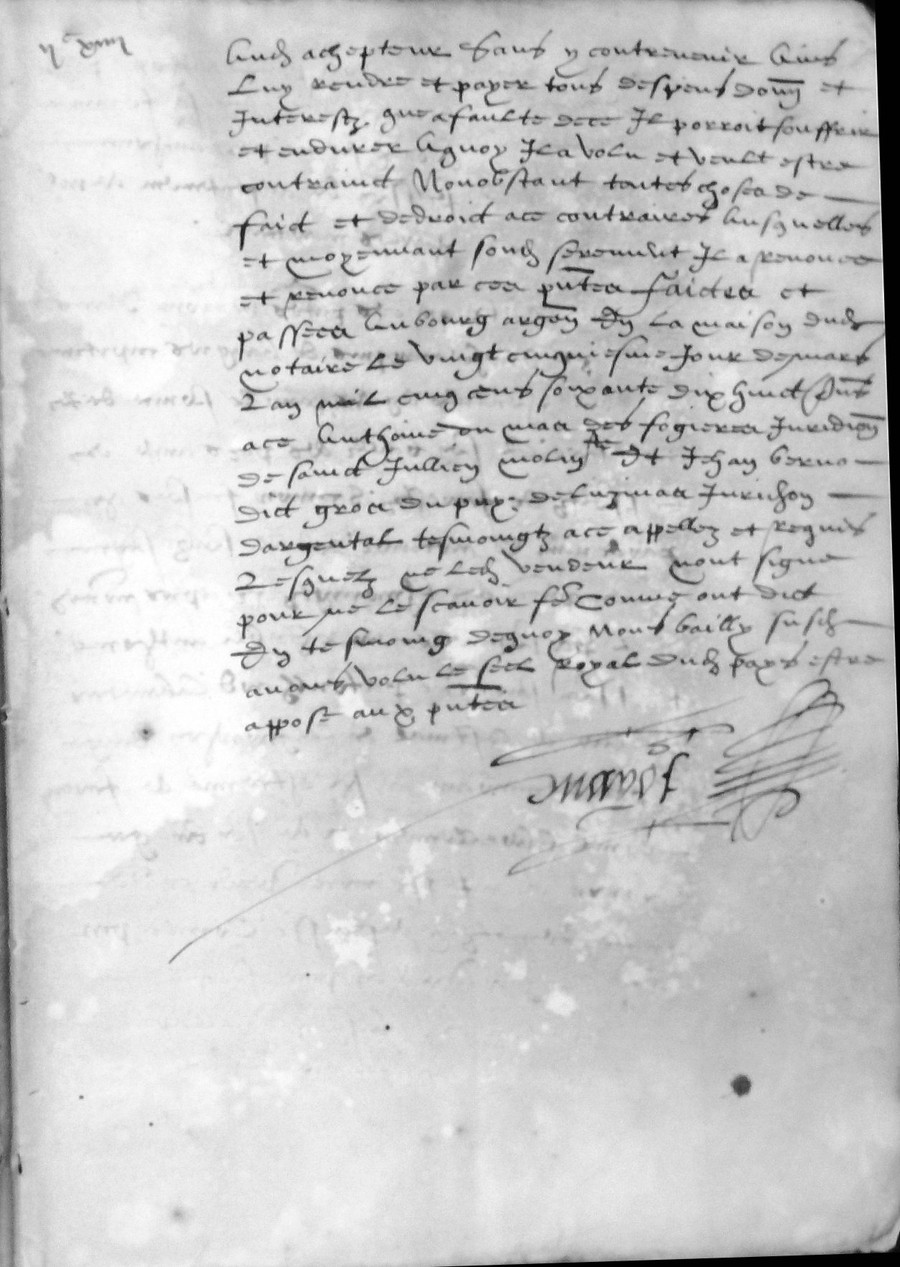 ii^c xiiii
Aud achepteur Sans y contrevenir Ains
Luy rendre et payer tous despens dom et
Interestz que a faulte de ce Il porroit souffrir
et endurer A quoy Il a volu et veult estre
contrainct Nonobstant toutes choses de
faict et de droict a ce contraires Ausquelles
et moyennant sond serement Il a renonce
et renonce par ces pntes faictes et
passees Au bourg argen En La maison dud
notaire Le vingt cinquiesme Jour de mars
L an mil cinq cens soixante dix huict Pns
a ce Anthoine du mas des fogieres Juridion
de sainct Jullien molin Et Jehan berno
dict gros du puy de Luzinas Jurisdon
dargental tesmoingtz a ce appellez et requis
Lesquelz ne Led vendeur n'ont signe
pour ne Le scavoir fe Comme ont dict
En tesmoing de quoy Nous bailly susd
auons volu Le seel Royal dud pays estre
appose aux pntes